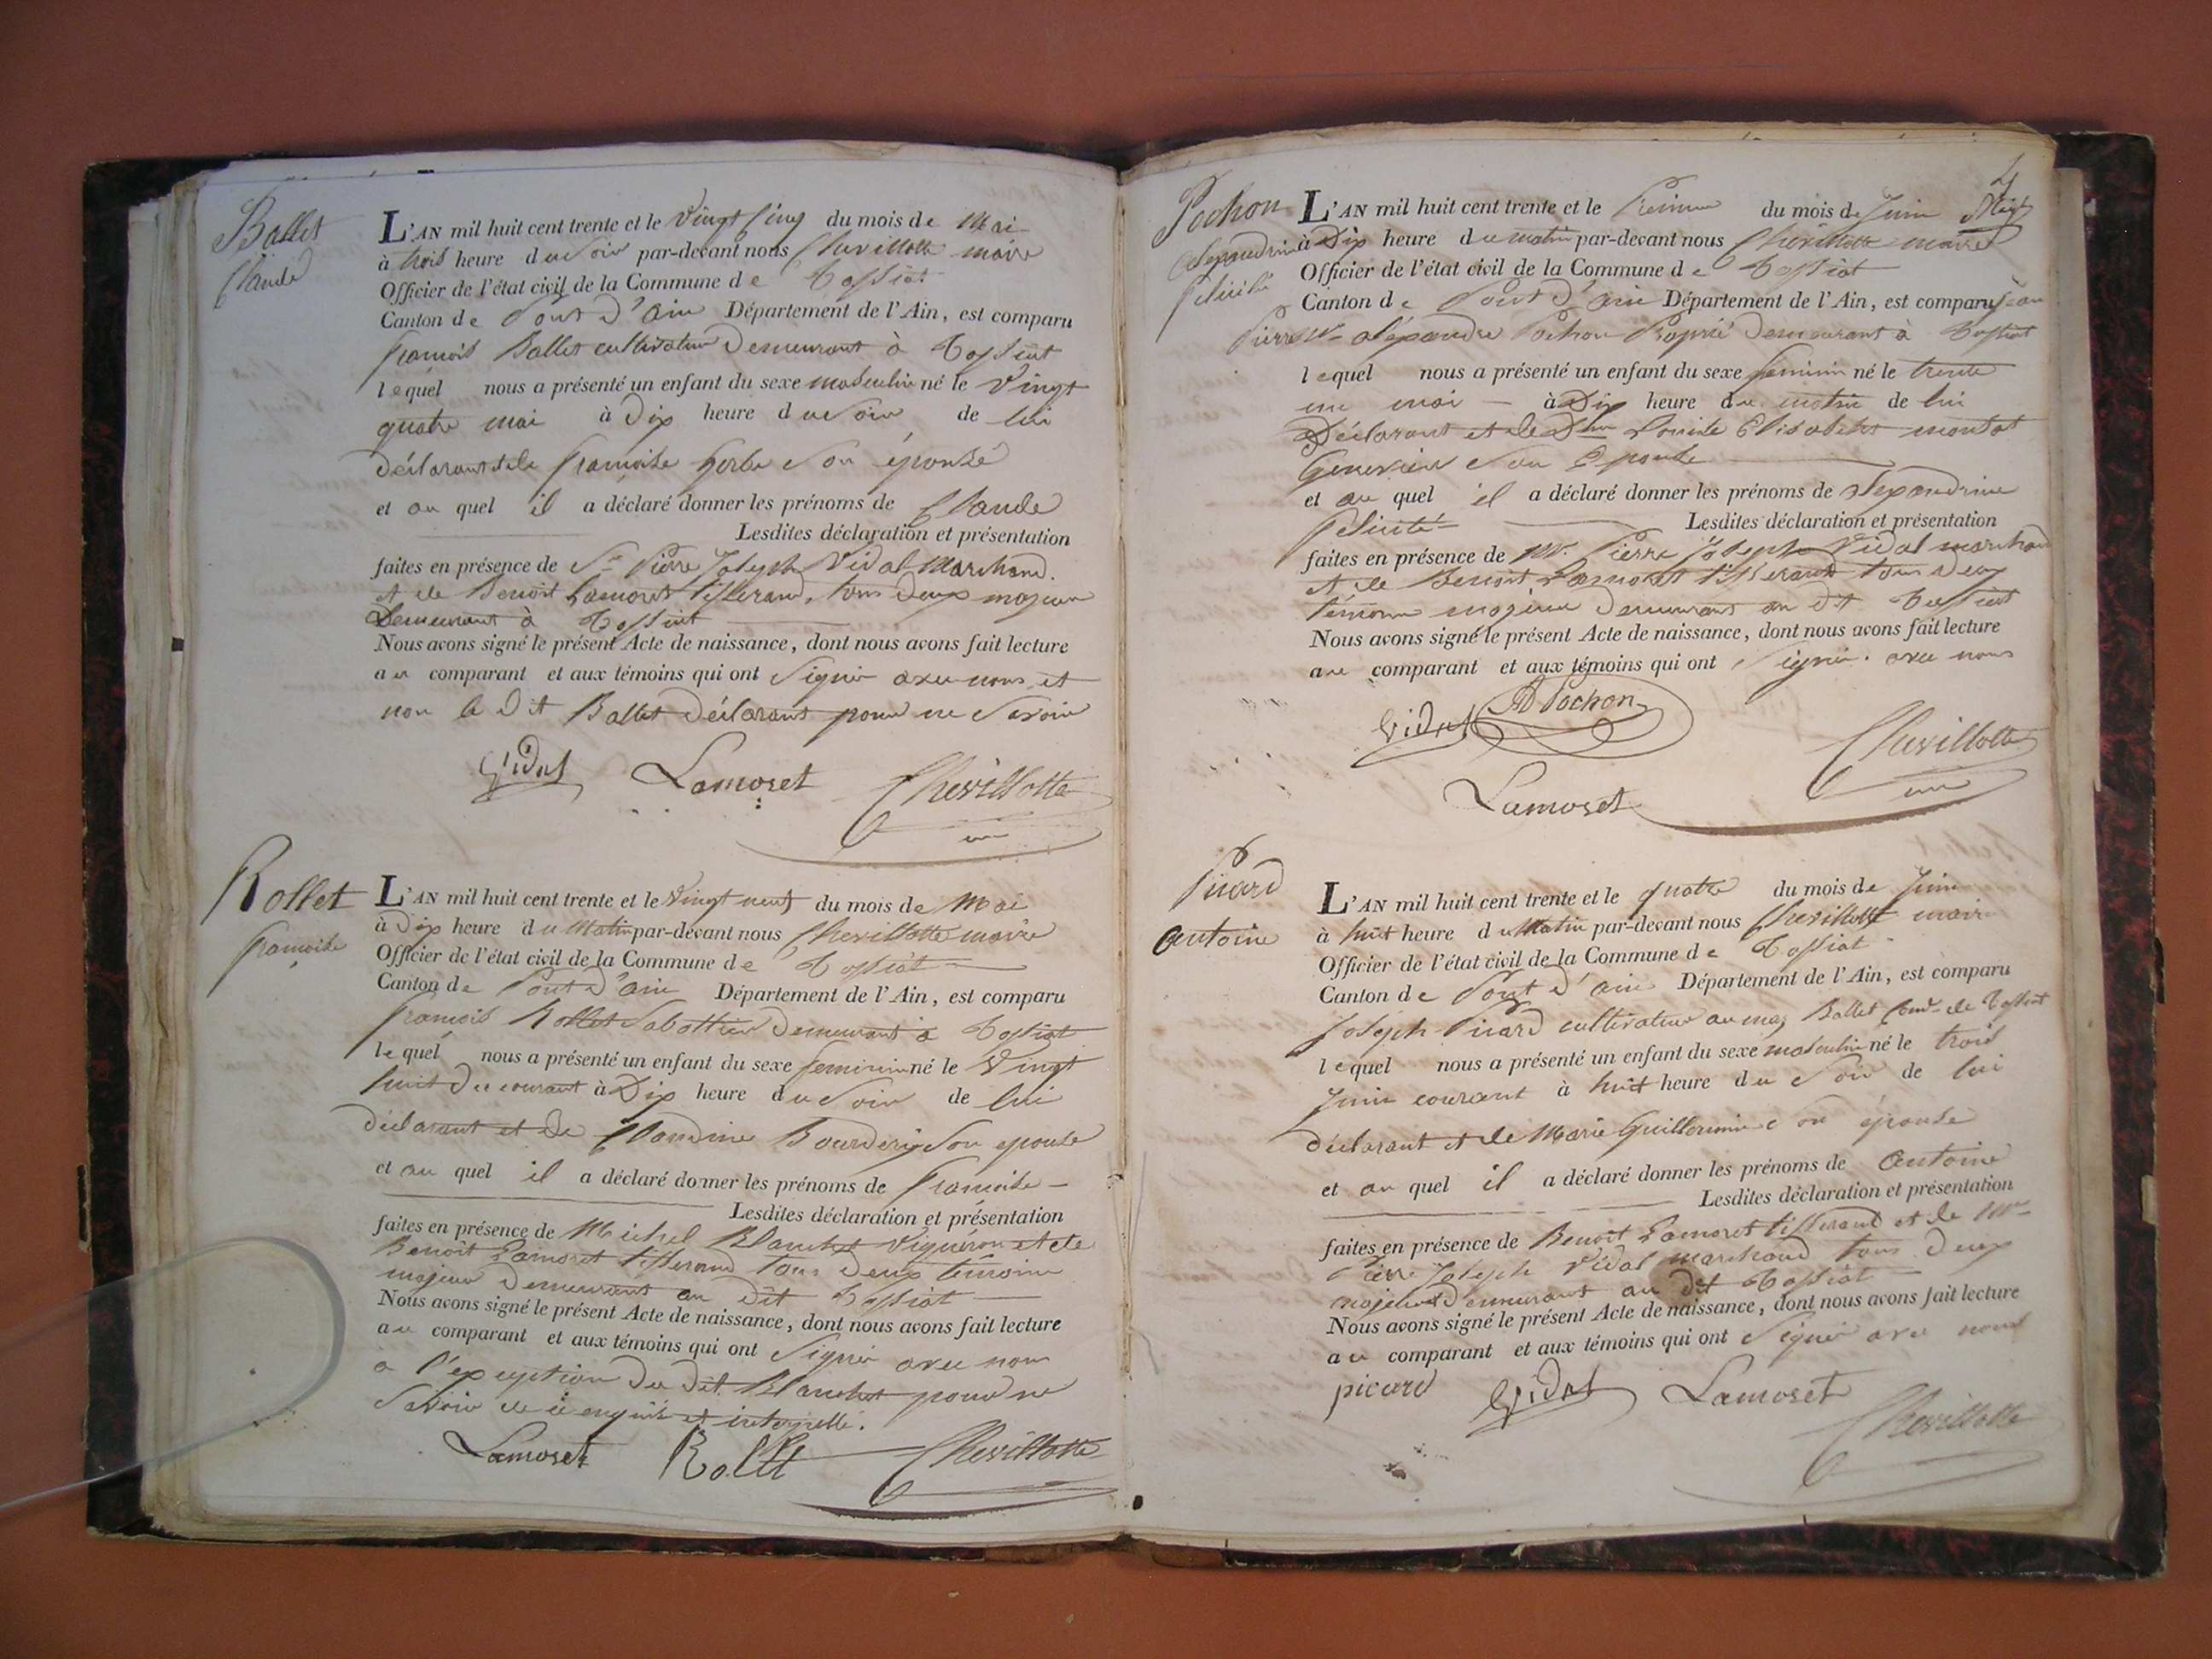 Ballet
Claude
L'AN mil huit cent trente et le Vingt Cinq du mois de Mai
à trois heure du Soir par-devant nous Chevillotte maire
Officier de l'état civil de la Commune de Tossiat
Canton de Pont d'ain Département de l'Ain, est comparu
françois Ballet cultivateur Demeurant à Tossiat
lequel nous a présenté un enfant du sexe masculin né le Vingt
quatre mai à Dix heure du Soir de lui
déclarant et de françoise son épouse
et au quel il a déclaré donner les prénoms de Claude
Lesdites déclaration et présentation
faites en présence de Sr Pierre Joseph Vidal Marchand.
et de Benoit Lamoret tisserand, tous deux majeur
Demeurant à Tossiat
Nous avons signé le présent Acte de naissance, dont nous avons fait lecture
au comparant et aux témoins qui ont Signé avec nous et
non le dit Ballet déclarant pour ne Savoir
Vidal Lamoret Chevillotte
Rollet
françoise
L'AN mil huit cent trente et le Vingt neuf du mois de Mai
à Dix heure du Matin par-devant nous Chevillotte maire
Officier de l'état civil de la Commune de Tossiat
Canton de Pont d'ain Département de l'Ain, est comparu
françois Rollet Sabottier Demeurant à Tossiat
lequel nous a présenté un enfant du sexe feminin né le Vingt
huit du courant à Dix heure du Soir de lui
déclarant et de Claudine Son epouse
et au quel il a déclaré donner les prénoms de françoise
Lesdites déclaration et présentation
faites en présence de Michel Blanchet Vigneron et de
Benoit Lamoret tisserand tous deux témoins
majeur Demeurant au Dit Tossiat
Nous avons signé le présent Acte de naissance, dont nous avons fait lecture
au comparant et aux témoins qui ont Signé avec nous
a l'exception du dit Blanchet pour ne
Savoir de ce enquis et interpellé.
Lamoret Rollet Chevillotte
4
Pochon
Alexandrine
felicité
L'AN mil huit cent trente et le Premier du mois de Juin
à Dix heure du matin par-devant nous Chevillotte maire
Officier de l'état civil de la Commune de Tossiat
Canton de Pont d'ain Département de l'Ain, est comparu Jean
Pierre Alexandre Pochon Demeurant à Tossiat
lequel nous a présenté un enfant du sexe feminin né le trente
un mai à Dix heure du matin de lui
Déclarant et de Dme Louise Elisabeth
Genevieve son Epouse
et au quel il a déclaré donner les prénoms de Alexandrine
felicité Lesdites déclaration et présentation
faites en présence de Mr. Pierre Joseph Vidal marchand
et de Benoit Lamoret tisserand tous deux
témoins majeur Demeurant au dit Tossiat
Nous avons signé le présent Acte de naissance, dont nous avons fait lecture
au comparant et aux témoins qui ont Signé. avec nous
Vidal A Pochon
Chevillotte
Lamoret
Picard
antoine
L'AN mil huit cent trente et le quatre du mois de Juin
à huit heure du Matin par-devant nous Chevillotte maire
Officier de l'état civil de la Commune de Tossiat
Canton de Pont d'ain Département de l'Ain, est comparu
Joseph Picard cultivateur au mas Ballet de Tossiat
lequel nous a présenté un enfant du sexe masculin né le trois
Juin courant à huit heure du Soir de lui
déclarant et de Marie Guillermin son épouse
et au quel il a déclaré donner les prénoms de antoine
Lesdites déclaration et présentation
faites en présence de Benoit Lamoret tisserand et de Mr
Pierre Joseph Vidal marchand tous deux
majeurs Demeurant au dit Tossiat
Nous avons signé le présent Acte de naissance, dont nous avons fait lecture
au comparant et aux témoins qui ont Signé avec nous
picard Vidal Lamoret
Chevillotte